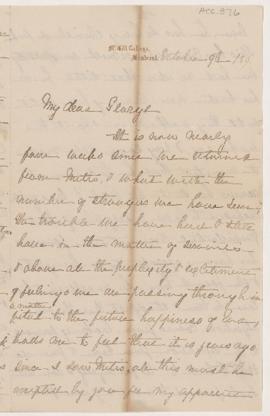 McGill College,
Montreal, October 9th 18
My dear George
It is now nearly
four weeks since we returned
from Metis, & what with the
number of strangers we have seen,
the trouble we have had & still
have in the matter of servants
& above all the perplexity & excitement
of feelings we are passing through in
a matter
to the future happiness of
me to feel that it is years ago
since I saw Metis, all this must be
accepted by you for my apparent